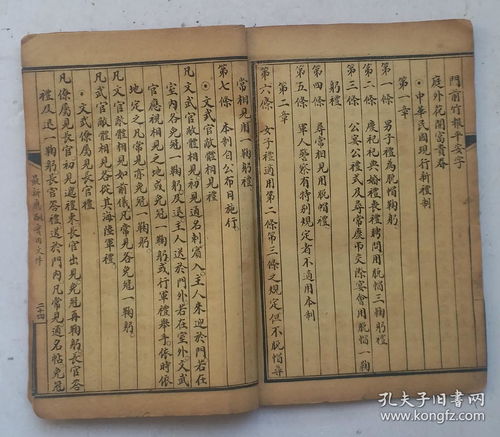 門前竹報平安字
庭外花開富貴春
・中華民國現行新禮制
第一章
第一條　男子禮為脫帽鞠躬
第二條　慶祀祝典婚禮喪禮聘問用脫帽三鞠躬禮
第三條　公宴公禮式及尋常慶弔交際宴會用脫帽一鞠
躬禮
第四條　尋常相見用脫帽禮
第五條　軍人警察有特別規定者不適用本制
第二章
第六條　女子禮適用第二條第三條之規定但不脫帽尋
常相見用一鞠躬禮
第七條　本制自公布日施行
・文武官敵體相見禮
凡文武官敵體初見通名刺賓入主人來迎於門若在
室內各免冠一鞠躬及送主人送於門外若在室外文武
官應視相見之地或免冠一鞠躬或行軍禮舉手依時依
地定之凡常見亦免冠一鞠躬
凡文官敵體相見如前儀凡常見各免冠一鞠躬
凡武官敵體相見各從其海陸軍禮
・文武僚屬見長官禮
凡僚屬見長官初見通禮來長官出見免冠再鞠躬長官答
禮及送一鞠躬長官答禮送於門內凡常見通名帖免冠
最新應酬
二十四
孔夫子旧书网
www.kongfz.com